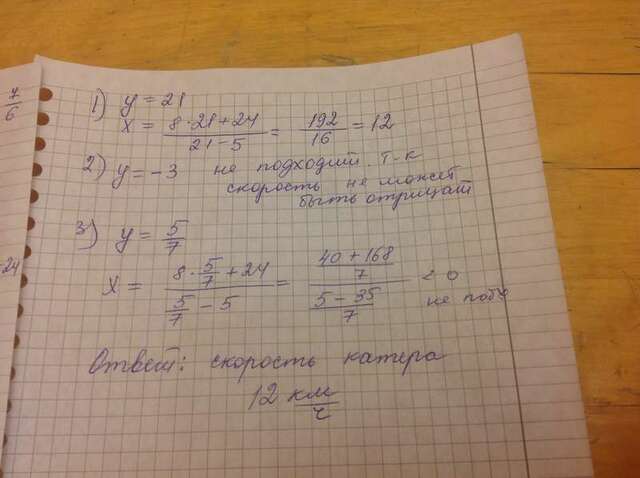 7/6
-24
1) y = 21
x = (8·21+24)/(21-5) = 192/16 = 12
2) y = -3 не подходит. т-к
скорость не может
быть отрицат
3) y = 5/7
x = (8·5/7+24)/(5/7-5) = ((40+168)/7)/((5-35)/7) < 0
не
Ответ: скорость катера
12 км/ч